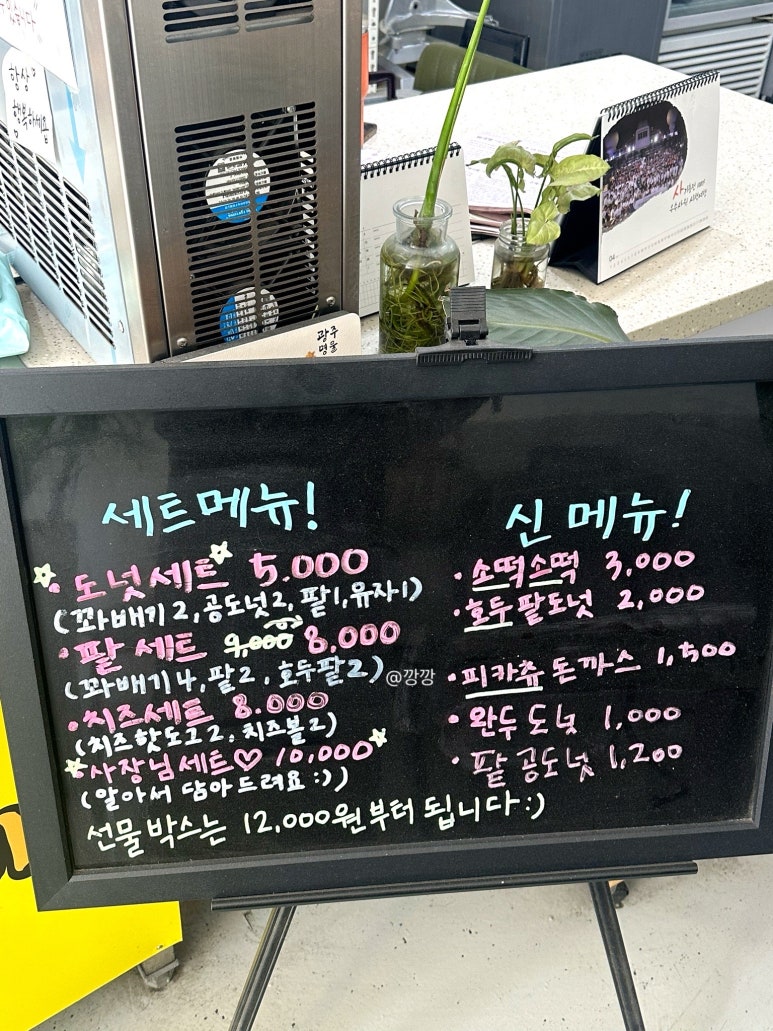 항상
행복하세요
광주
명물
세트메뉴!
·도넛세트 5.000
(꽈배기2, 공도넛2, 팥1, 유자1)
·팥 세트 9,000 8,000
(꽈배기4, 팥2, 호두팥2)
·치즈세트 8.000
(치즈핫도그2, 치즈볼2)
·사장님세트♡ 10,000
(알아서 담아드려요:))
선물박스는 12,000원부터 됩니다:)
신 메뉴!
·소떡소떡 3,000
·호두팥도넛 2,000
·피카츄돈까스 1,500
·완두도넛 1,000
·팥공도넛 1,200
@깡깡